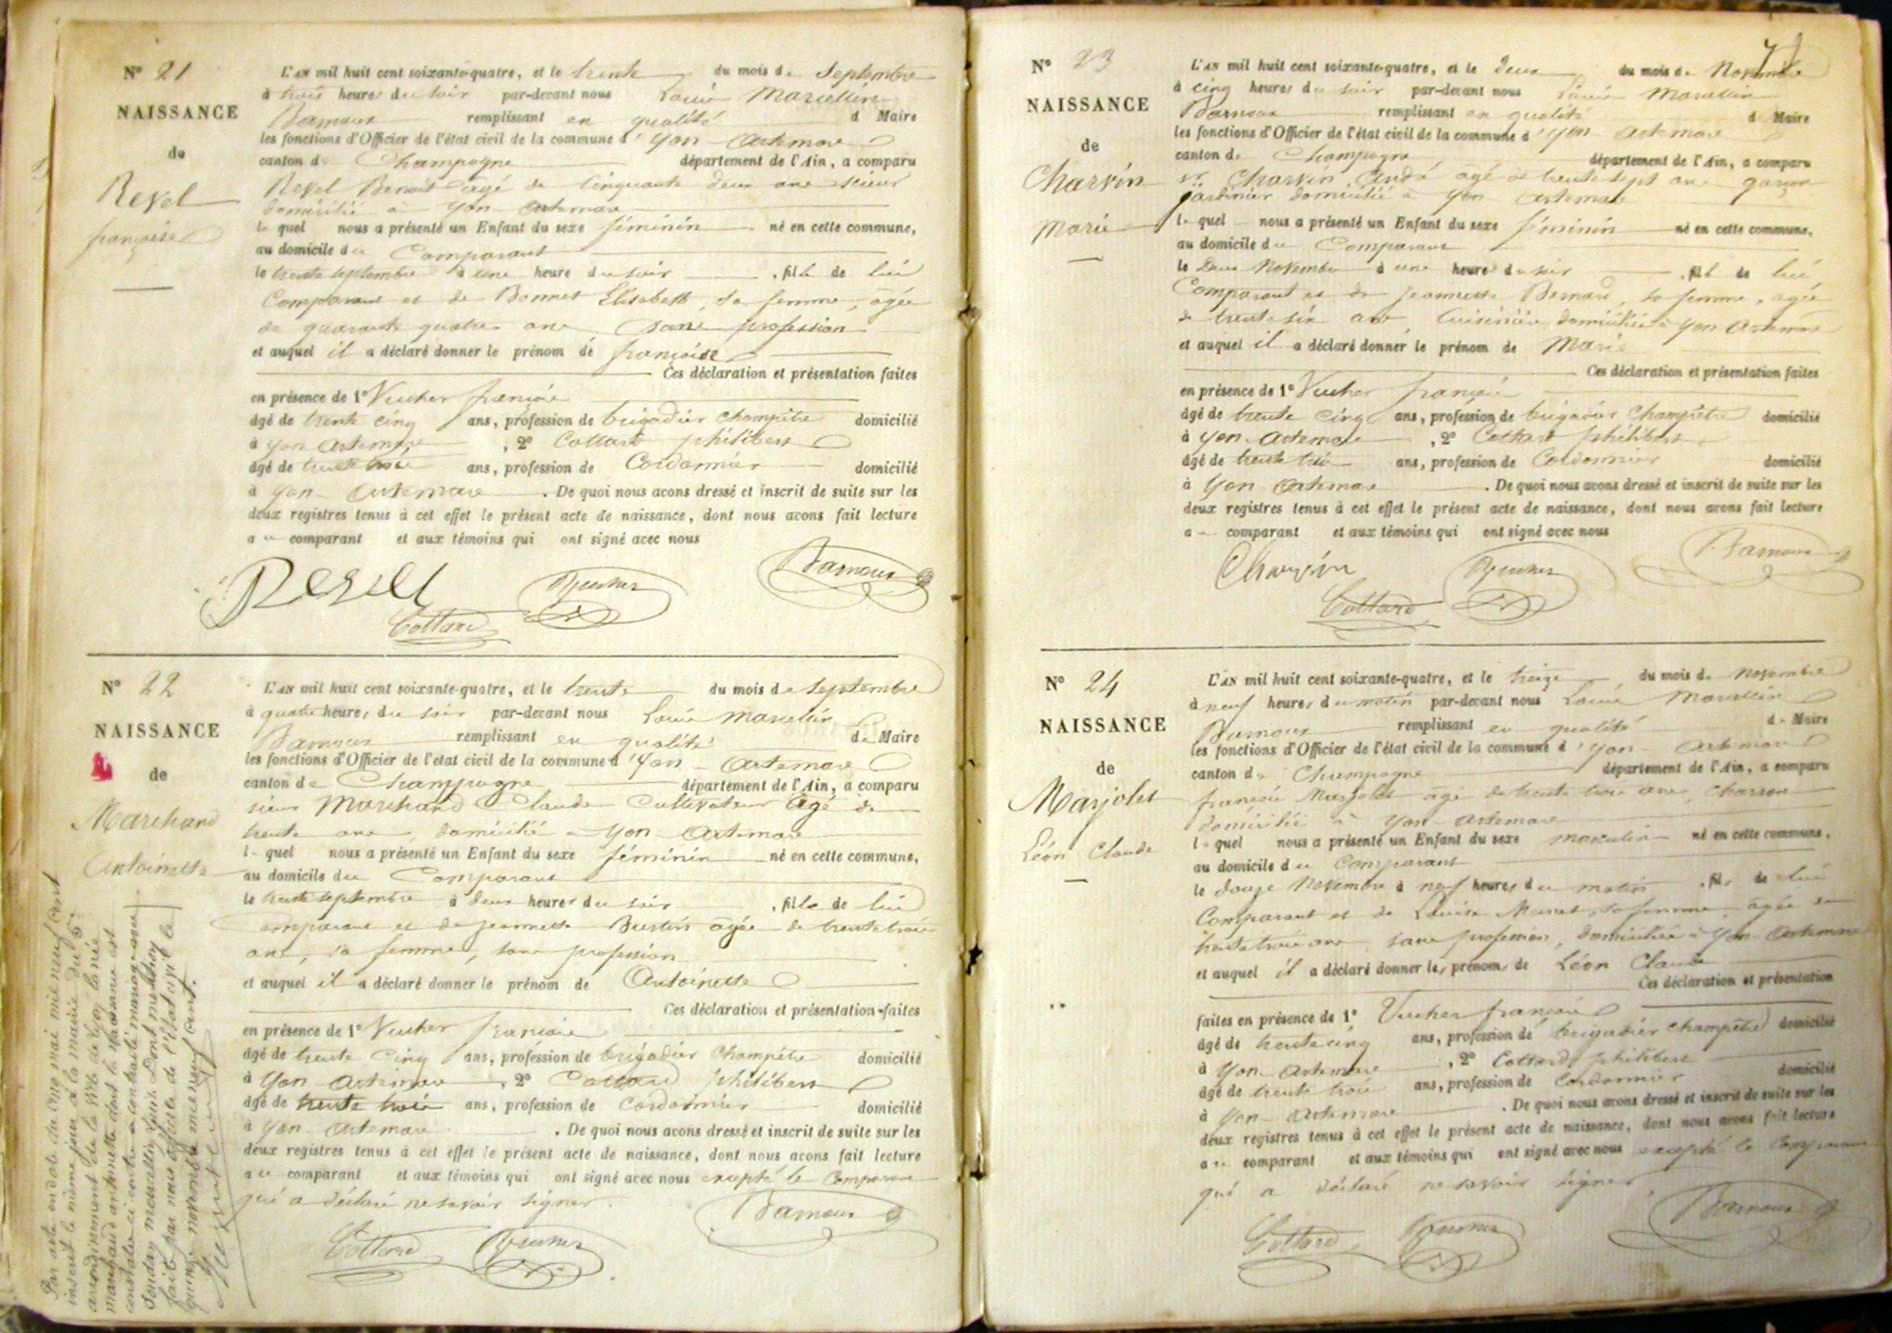 N° 21
NAISSANCE
de
Revel
françoise
L'AN mil huit cent soixante-quatre, et le trente du mois de Septembre
à trois heures du soir par-devant nous Louis Marcellin
Barnoux remplissant en qualité d Maire
les fonctions d'Officier de l'état civil de la commune d'Yon-Artemare
canton de Champagne département de l'Ain, a comparu
Revel Benoit âgé de Cinquante deux ans
domicilié à Yon Artemare
lequel nous a présenté un Enfant du sexe féminin né en cette commune,
au domicile du Comparant
le trente septembre à une heure du soir, fille de lui
Comparant et de Bonnet Elisabeth, sa femme, âgée
de quarante quatre ans sans profession
et auquel il a déclaré donner le prénom de françoise
Ces déclaration et présentation faites
en présence de 1° Vucher françois
âgé de trente cinq ans, profession de brigadier champêtre domicilié
à Yon Artemare, 2° Cottard philibert
âgé de trente trois ans, profession de Cordonnier domicilié
à Yon-Artemare. De quoi nous avons dressé et inscrit de suite sur les
deux registres tenus à cet effet le présent acte de naissance, dont nous avons fait lecture
au comparant et aux témoins qui ont signé avec nous
Revel
Cottard
Vucher
Barnoux
N° 22
NAISSANCE
de
Marchand
Antoinette
L'AN mil huit cent soixante-quatre, et le trente du mois de Septembre
à quatre heures du soir par-devant nous Louis Marcellin
Barnoux remplissant en qualité de Maire
les fonctions d'Officier de l'état civil de la commune d'Yon-Artemare
canton de Champagne département de l'Ain, a comparu
sieur Marchand Claude Cultivateur âgé de
trente ans, domicilié à Yon-Artemare
lequel nous a présenté un Enfant du sexe féminin né en cette commune,
au domicile du Comparant
le trente septembre à deux heures du soir, fille de lui
Comparant et de jeannette âgée de trente trois
ans, sa femme, sans profession
et auquel il a déclaré donner le prénom de Antoinette
Ces déclaration et présentation faites
en présence de 1° Vucher françois
âgé de trente cinq ans, profession de brigadier Champêtre domicilié
à Yon-Artemare, 2° Cottard philibert
âgé de trente trois ans, profession de Cordonnier domicilié
à Yon-Artemare. De quoi nous avons dressé et inscrit de suite sur les
deux registres tenus à cet effet le présent acte de naissance, dont nous avons fait lecture
au comparant et aux témoins qui ont signé avec nous excepté le Comparant
qui a déclaré ne savoir signer.
Cottard
Vucher
Barnoux
Par acte en date du onze mai mil neuf cent
inscrit le même jour à la mairie du
arrondissement de la ville de Lyon, la née
marchand antoinette dont la naissance est
constatée ci-contre a contracté mariage avec
Dont mention
faite par nous officier de l'Etat civil le
quinze novembre mil neuf cent.
N° 23
NAISSANCE
de
Charvin
Marie
L'AN mil huit cent soixante-quatre, et le deux du mois de Novembre
à cinq heures du soir par-devant nous Louis Marcellin
Barnoux remplissant en qualité d Maire
les fonctions d'Officier de l'état civil de la commune d'Yon-Artemare
canton de Champagne département de l'Ain, a comparu
sr Charvin André âgé de trente sept ans garçon
jardinier domicilié à Yon Artemare
lequel nous a présenté un Enfant du sexe féminin né en cette commune,
au domicile du Comparant
le Deux Novembre à une heure du soir, fille de lui
Comparant et de jeannette Bernard, sa femme, âgée
de trente six ans Cuisinière domiciliée à Yon Artemare
et auquel il a déclaré donner le prénom de Marie
Ces déclaration et présentation faites
en présence de 1° Vucher françois
âgé de trente cinq ans, profession de brigadier Champêtre domicilié
à Yon-Artemare, 2° Cottard philibert
âgé de trente trois ans, profession de Cordonnier domicilié
à Yon-Artemare. De quoi nous avons dressé et inscrit de suite sur les
deux registres tenus à cet effet le présent acte de naissance, dont nous avons fait lecture
au comparant et aux témoins qui ont signé avec nous
Charvin
Cottard
Vucher
Barnoux
N° 24
NAISSANCE
de
Marjolet
Léon Claude
L'AN mil huit cent soixante-quatre, et le treize du mois de Novembre
à neuf heures du matin par-devant nous Louis Marcellin
Barnoux remplissant en qualité de Maire
les fonctions d'Officier de l'état civil de la commune d'Yon-Artemare
canton de Champagne département de l'Ain, a comparu
françois Marjolet âgé de trente trois ans, charron
domicilié à Yon-Artemare
lequel nous a présenté un Enfant du sexe masculin né en cette commune,
au domicile du Comparant
le douze Novembre à neuf heures du matin, fils de lui
Comparant et de Louise sa femme, âgée de
trente trois ans, sans profession, domiciliée à Yon-Artemare
et auquel il a déclaré donner les prénoms de Léon Claude
Ces déclaration et présentation
faites en présence de 1° Vucher françois
âgé de trente cinq ans, profession de brigadier champêtre domicilié
à Yon-Artemare, 2° Cottard philibert
âgé de trente trois ans, profession de Cordonnier domicilié
à Yon-Artemare. De quoi nous avons dressé et inscrit de suite sur les
deux registres tenus à cet effet le présent acte de naissance, dont nous avons fait lecture
au comparant et aux témoins qui ont signé avec nous excepté le Comparant
qui a déclaré ne savoir signer
Cottard
Vucher
Barnoux